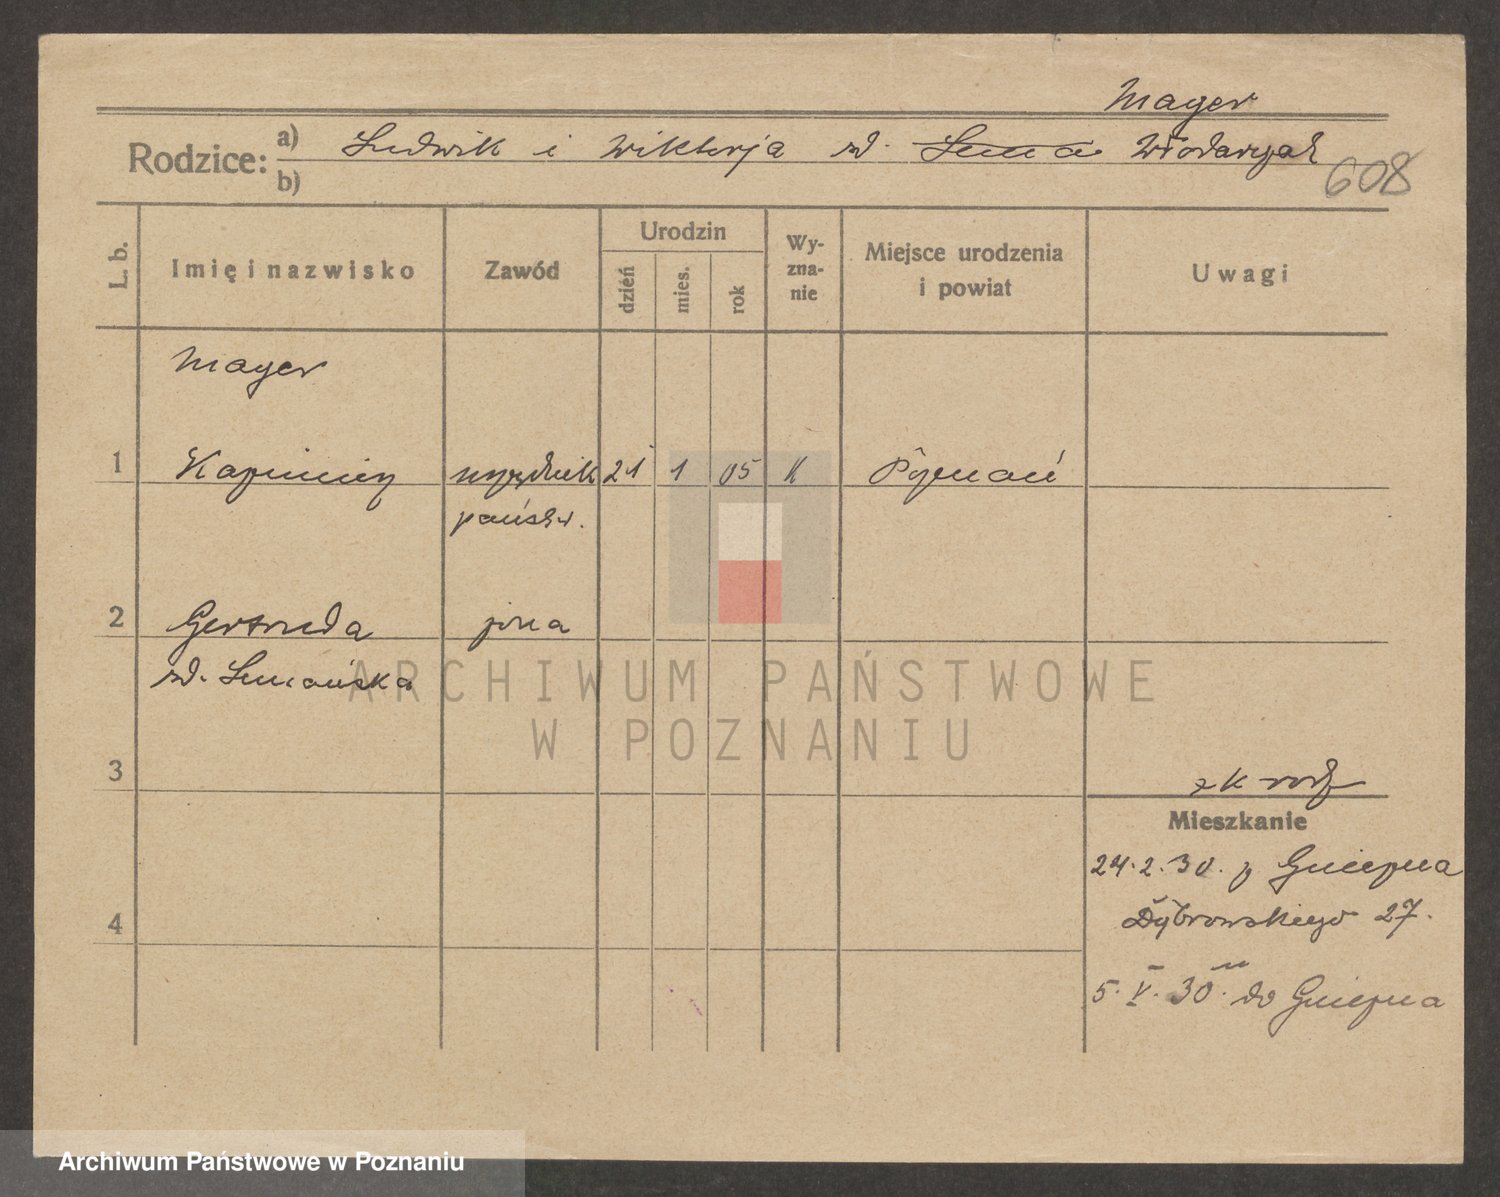 Mayer
Rodzice: a) Ludwik i Wiktorja zd. Włodarczak
b)
608
L. b. Imię i nazwisko Zawód Urodzin dzień mies. rok Wyznanie Miejsce urodzenia i powiat Uwagi
Mayer
1 Kazimierz urzędnik 21 1 05 K Poznań
państw.
2 Gertruda żona
zd. Lemańska
ARCHIWUM PAŃSTWOWE
W POZNANIU
3
zk
Mieszkanie
24.2.30. z Gniezna
4 Dąbrowskiego 27.
5. V. 30. do Gniezna
Archiwum Państwowe w Poznaniu